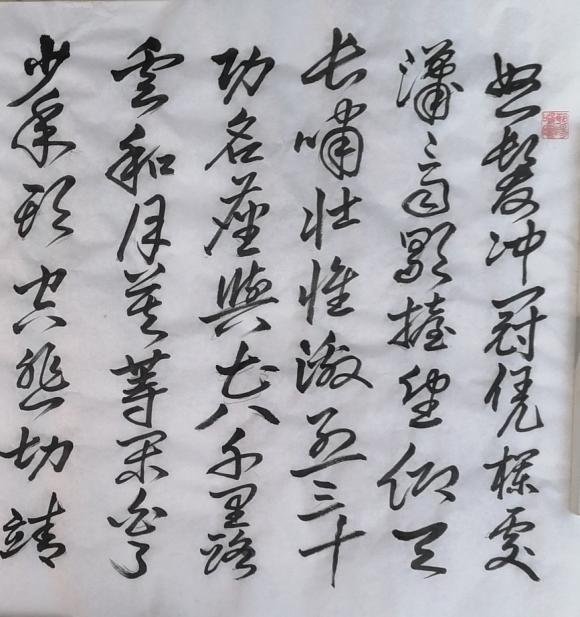 怒髮冲冠凭栏處
瀟々雨歇擡望仰天
长嘯壮懷激烈三十
功名塵與土八千里路
雲和月莫等闲白了
少年头空悲切靖